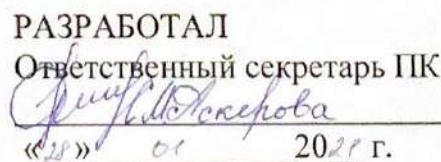 РАЗРАБОТАЛ
Ответственный секретарь ПК
С.М. Аскерова
«28» 01 2021 г.